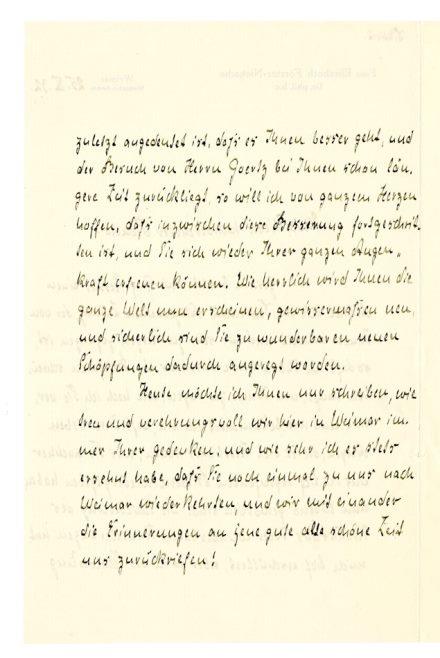 zuletzt angedeutet ist, daſs es Ihnen besser geht, und
der Besuch von Herrn Goertz bei Ihnen schon län,
gere Zeit zurückliegt, so will ich von ganzem Herzen
hoffen, daſs inzwischen diese Besserung fortgeschrit,
ten ist, und Sie sich wieder Ihrer ganzen Augen,,
kraft erfreuen können. Wie herrlich wird Ihnen die
ganze Welt nun erscheinen, gewissermaſsen neu,
und sicherlich sind Sie zu wunderbaren neuen
Schöpfungen dadurch angeregt worden.
Heute möchte ich Ihnen nur schreiben, wie
treu und verehrungsvoll wir hier in Weimar im,
mer Ihrer gedenken, und wie sehr ich es stets
ersehnt habe, daſs Sie noch einmal zu uns nach
Weimar wiederkehrten, und wir mit einander
die Erinnerungen an jene gute alte schöne Zeit
uns zurückriefen!